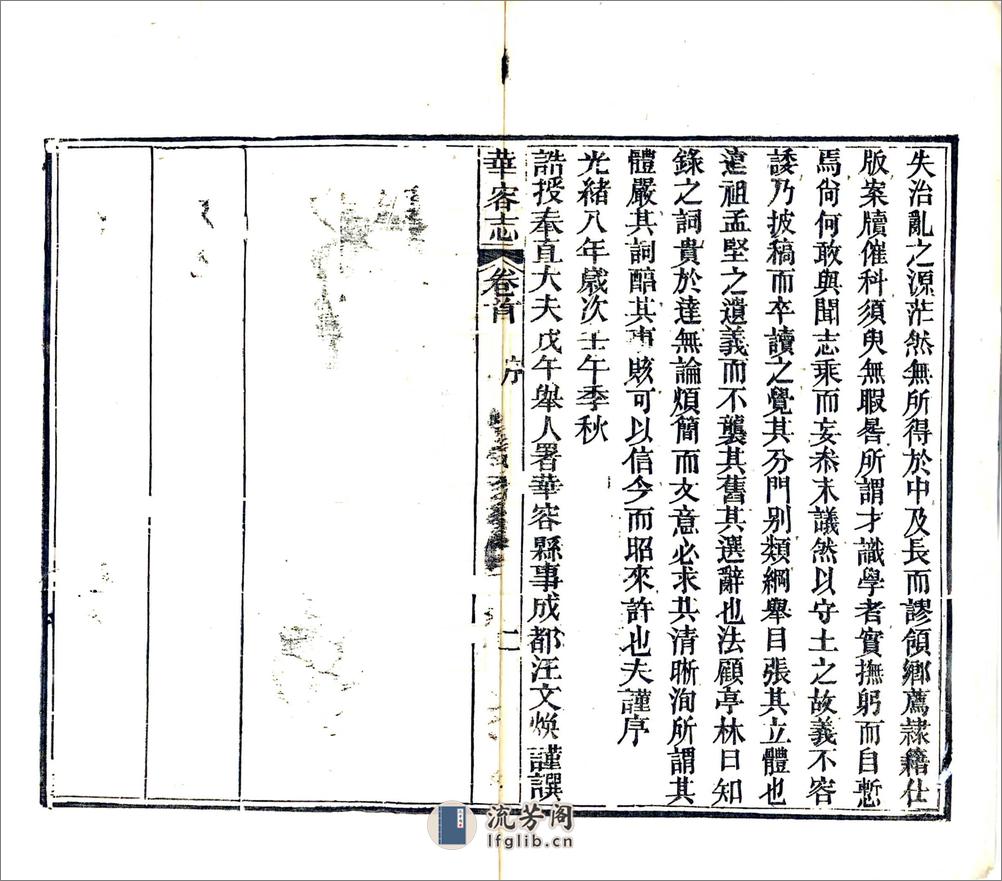 失治亂之源茫然無所得於中及長而謬領鄉薦隸籍仕
版案牘催科須臾無暇晷所謂才識學者實撫躬而自慙
焉尙何敢與聞志乘而妄叅末議然以守土之故義不容
諉乃披稿而卒讀之覺其分門别類綱舉目張其立體也
遠祖孟堅之遺義而不襲其舊其選辭也法顧亭林日知
錄之詞貴於達無論煩簡而文意必求其清晰洵所謂其
體嚴其詞醕其事賅可以信今而昭來許也夫謹序
光緒八年歲次壬午季秋
誥授奉直大夫戊午舉人署華容縣事成都汪文煥謹譔
華容志 卷首 序 二
流芳阁
lfglib.cn